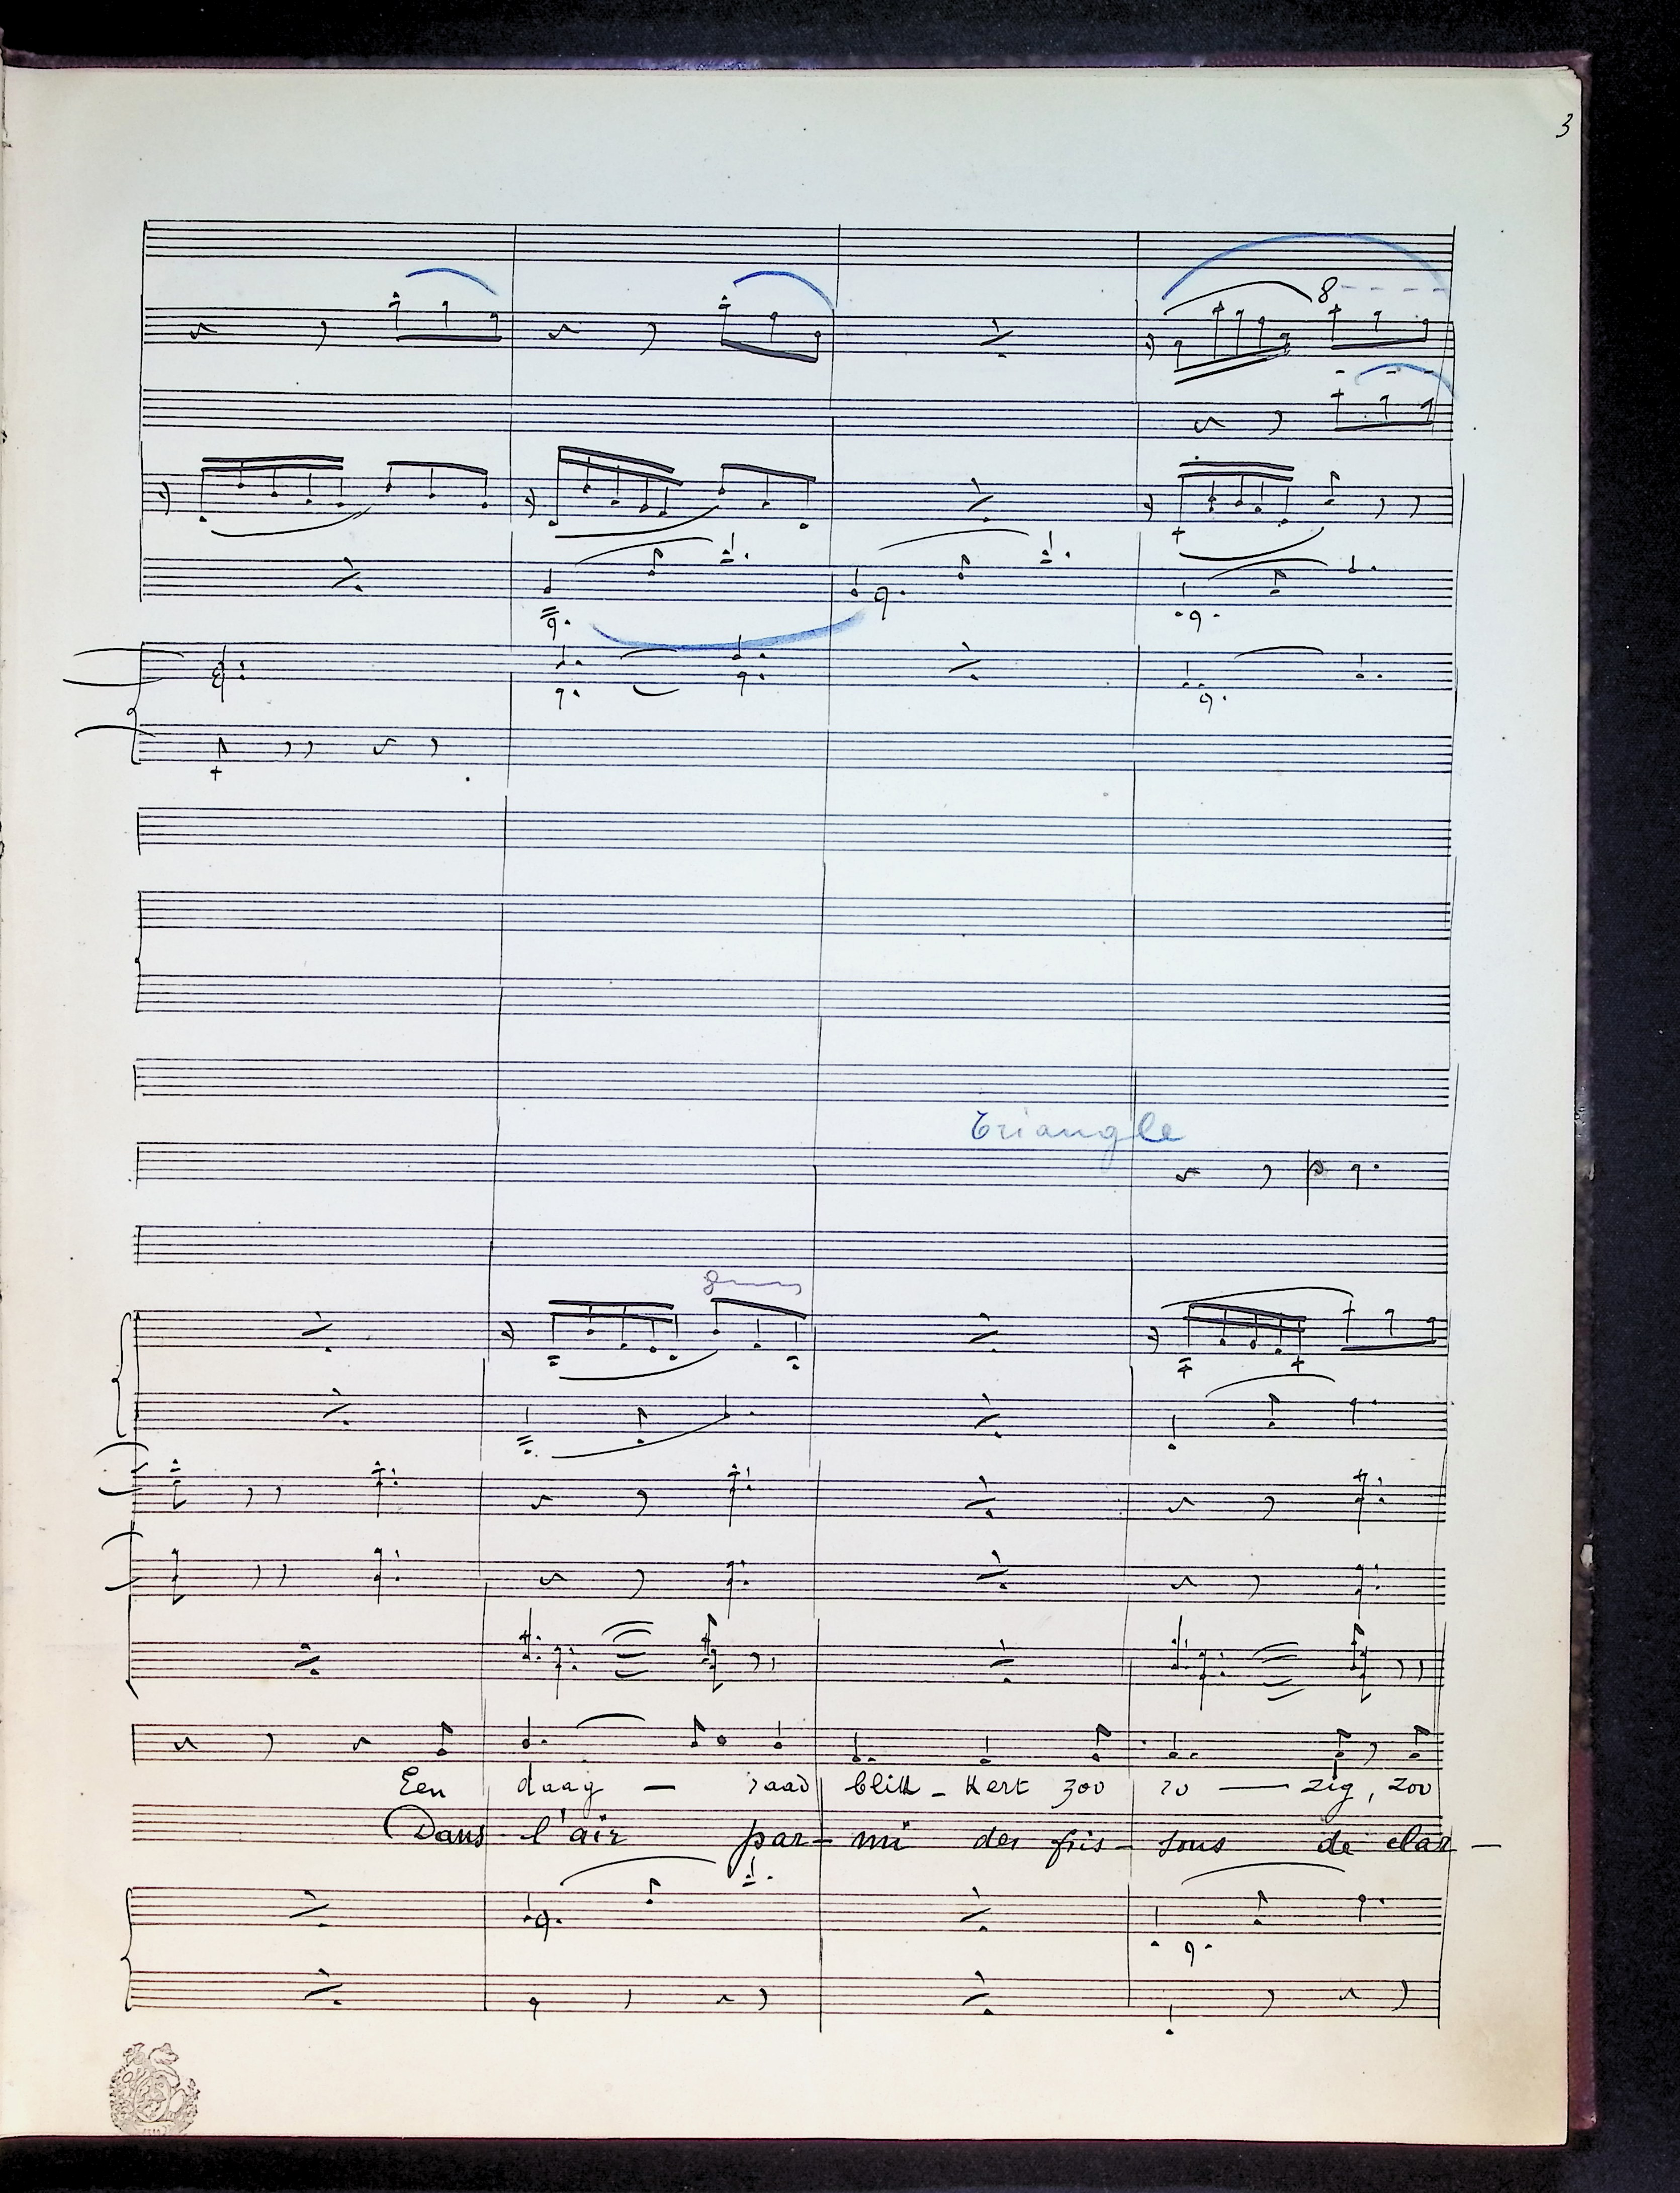 3
8
Triangle
8
Een daag — raad blik - kert zoo ro — zig, zoo
Dans l'air par - mi des fris - sons de clar -